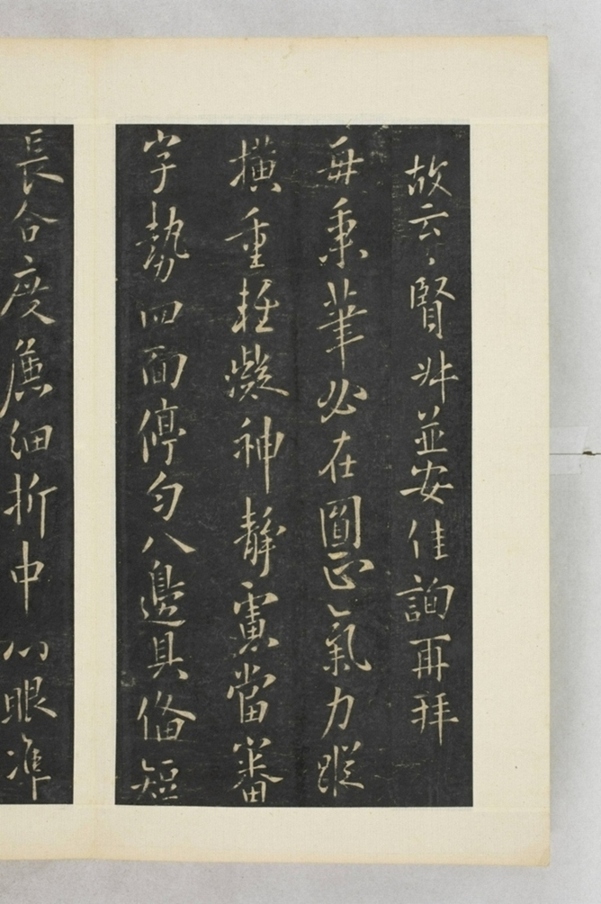 故云〻賢弟並安佳詢再拜
每秉筆必在圓正氣力蹤
橫重輕凝神靜慮當審
字勢四面停勻八邊具偹短
長合度麁細折中心眼准